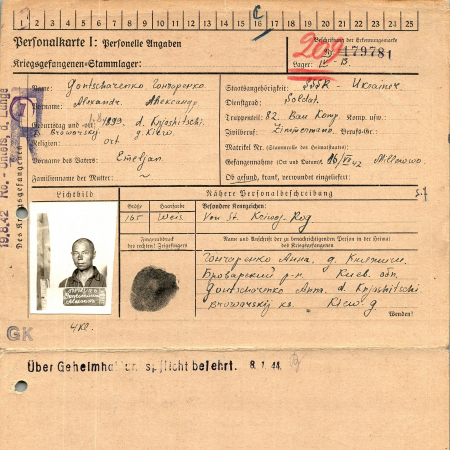 1 2 3 4 5 6 7 8 9 10 11 12 13 14 15 16 17 18 19 20 21 22 23 24 25
Personalkarte I: Personelle Angaben
Kriegsgefangenen-Stammlager:
Beschriftung der Erkennungsmarke
Nr. 179781
Lager:
209
Des Kriegsgefangenen
Name: Gontscharenko Гончаренко
Vorname: Alexandr. Александр
Geburtstag und -ort: 1899. d. Knjashitschi
Browarsky g. Kiew.
Religion:
Vorname des Vaters: Emeljan
Familienname der Mutter: ~
Staatsangehörigkeit: SSSR - Ukrainer.
Dienstgrad: Soldat.
Truppenteil: 82. Bau Komp. Komp. usw.
Zivilberuf: Zimmermann. Berufs-Gr.:
Matrikel Nr. (Stammrolle des Heimatstaates):
Gefangennahme (Ort und Datum): Millowo.
Ob gesund, krank, verwundet eingeliefert:
Lichtbild
Nähere Personalbeschreibung
Größe Haarfarbe Besondere Kennzeichen:
165 Weis. Von St. Kriwoj-Rog
Fingerabdruck
des rechten! Zeigefingers
Name und Anschrift der zu benachrichtigenden Person in der Heimat
des Kriegsgefangenen
Гончаренко Анна д. Княжичи
Броварский р-н Киев. обл.
Gontscharenko Anna d. Knjashitschi
Browarskij Kiew g.
Wenden!
19.8.42
GK
4 Kl.
Über Geheimhaltungspflicht belehrt. 8. 1. 44.